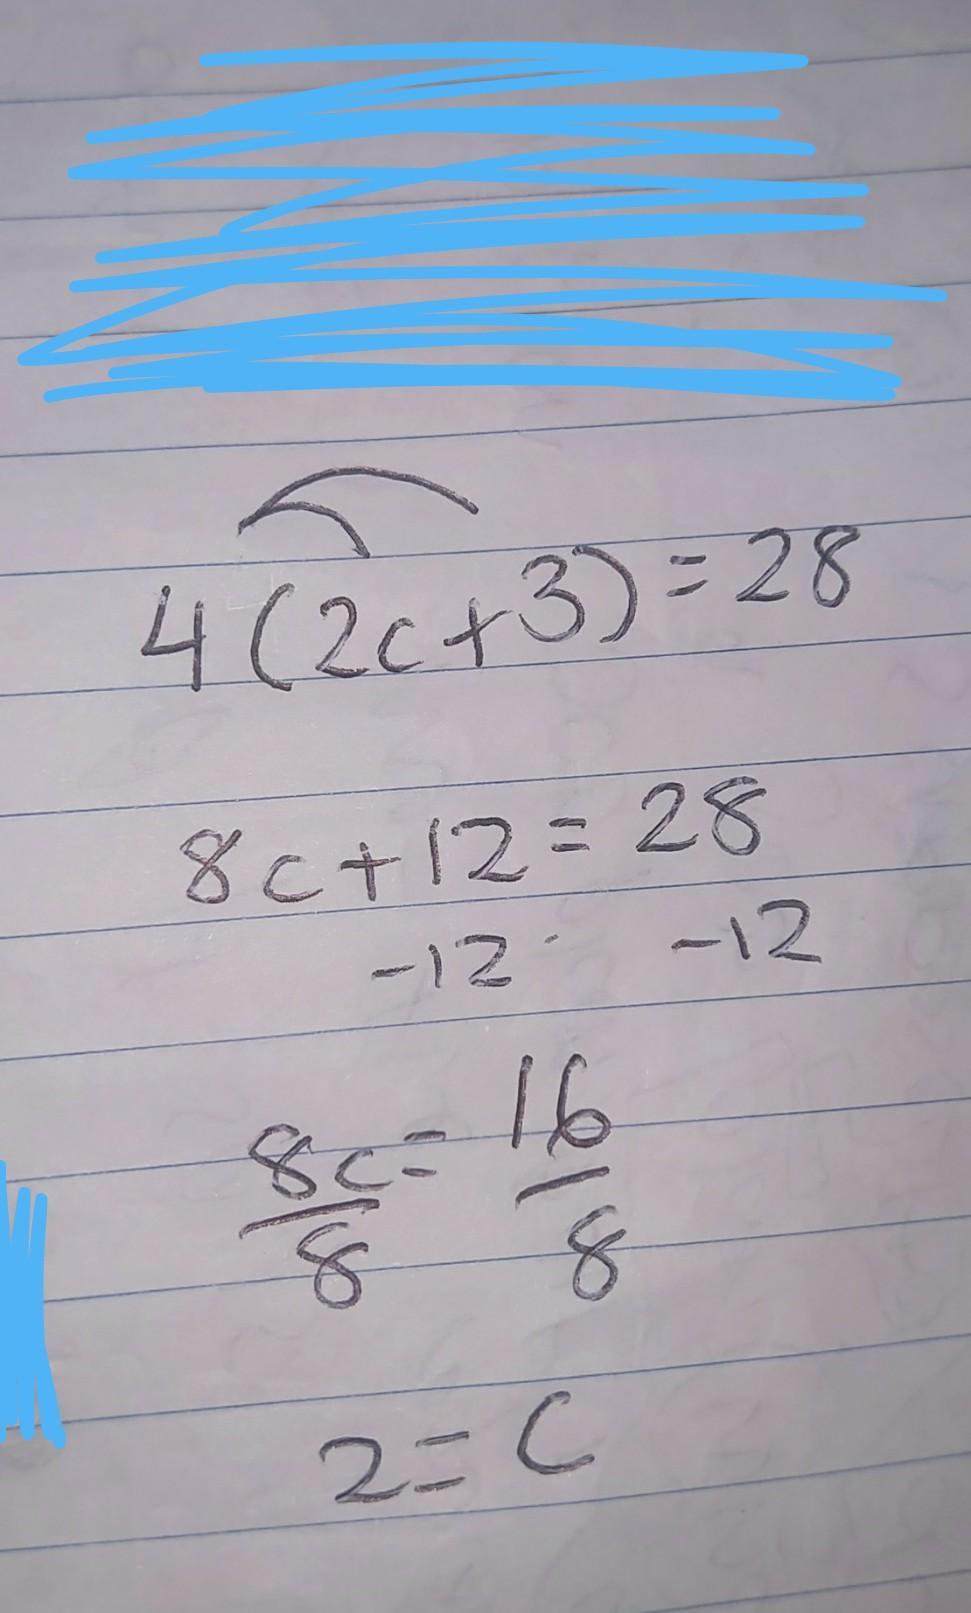 4(2c+3)=28
8c+12=28
-12 -12
8c= 16
8 8
2=c